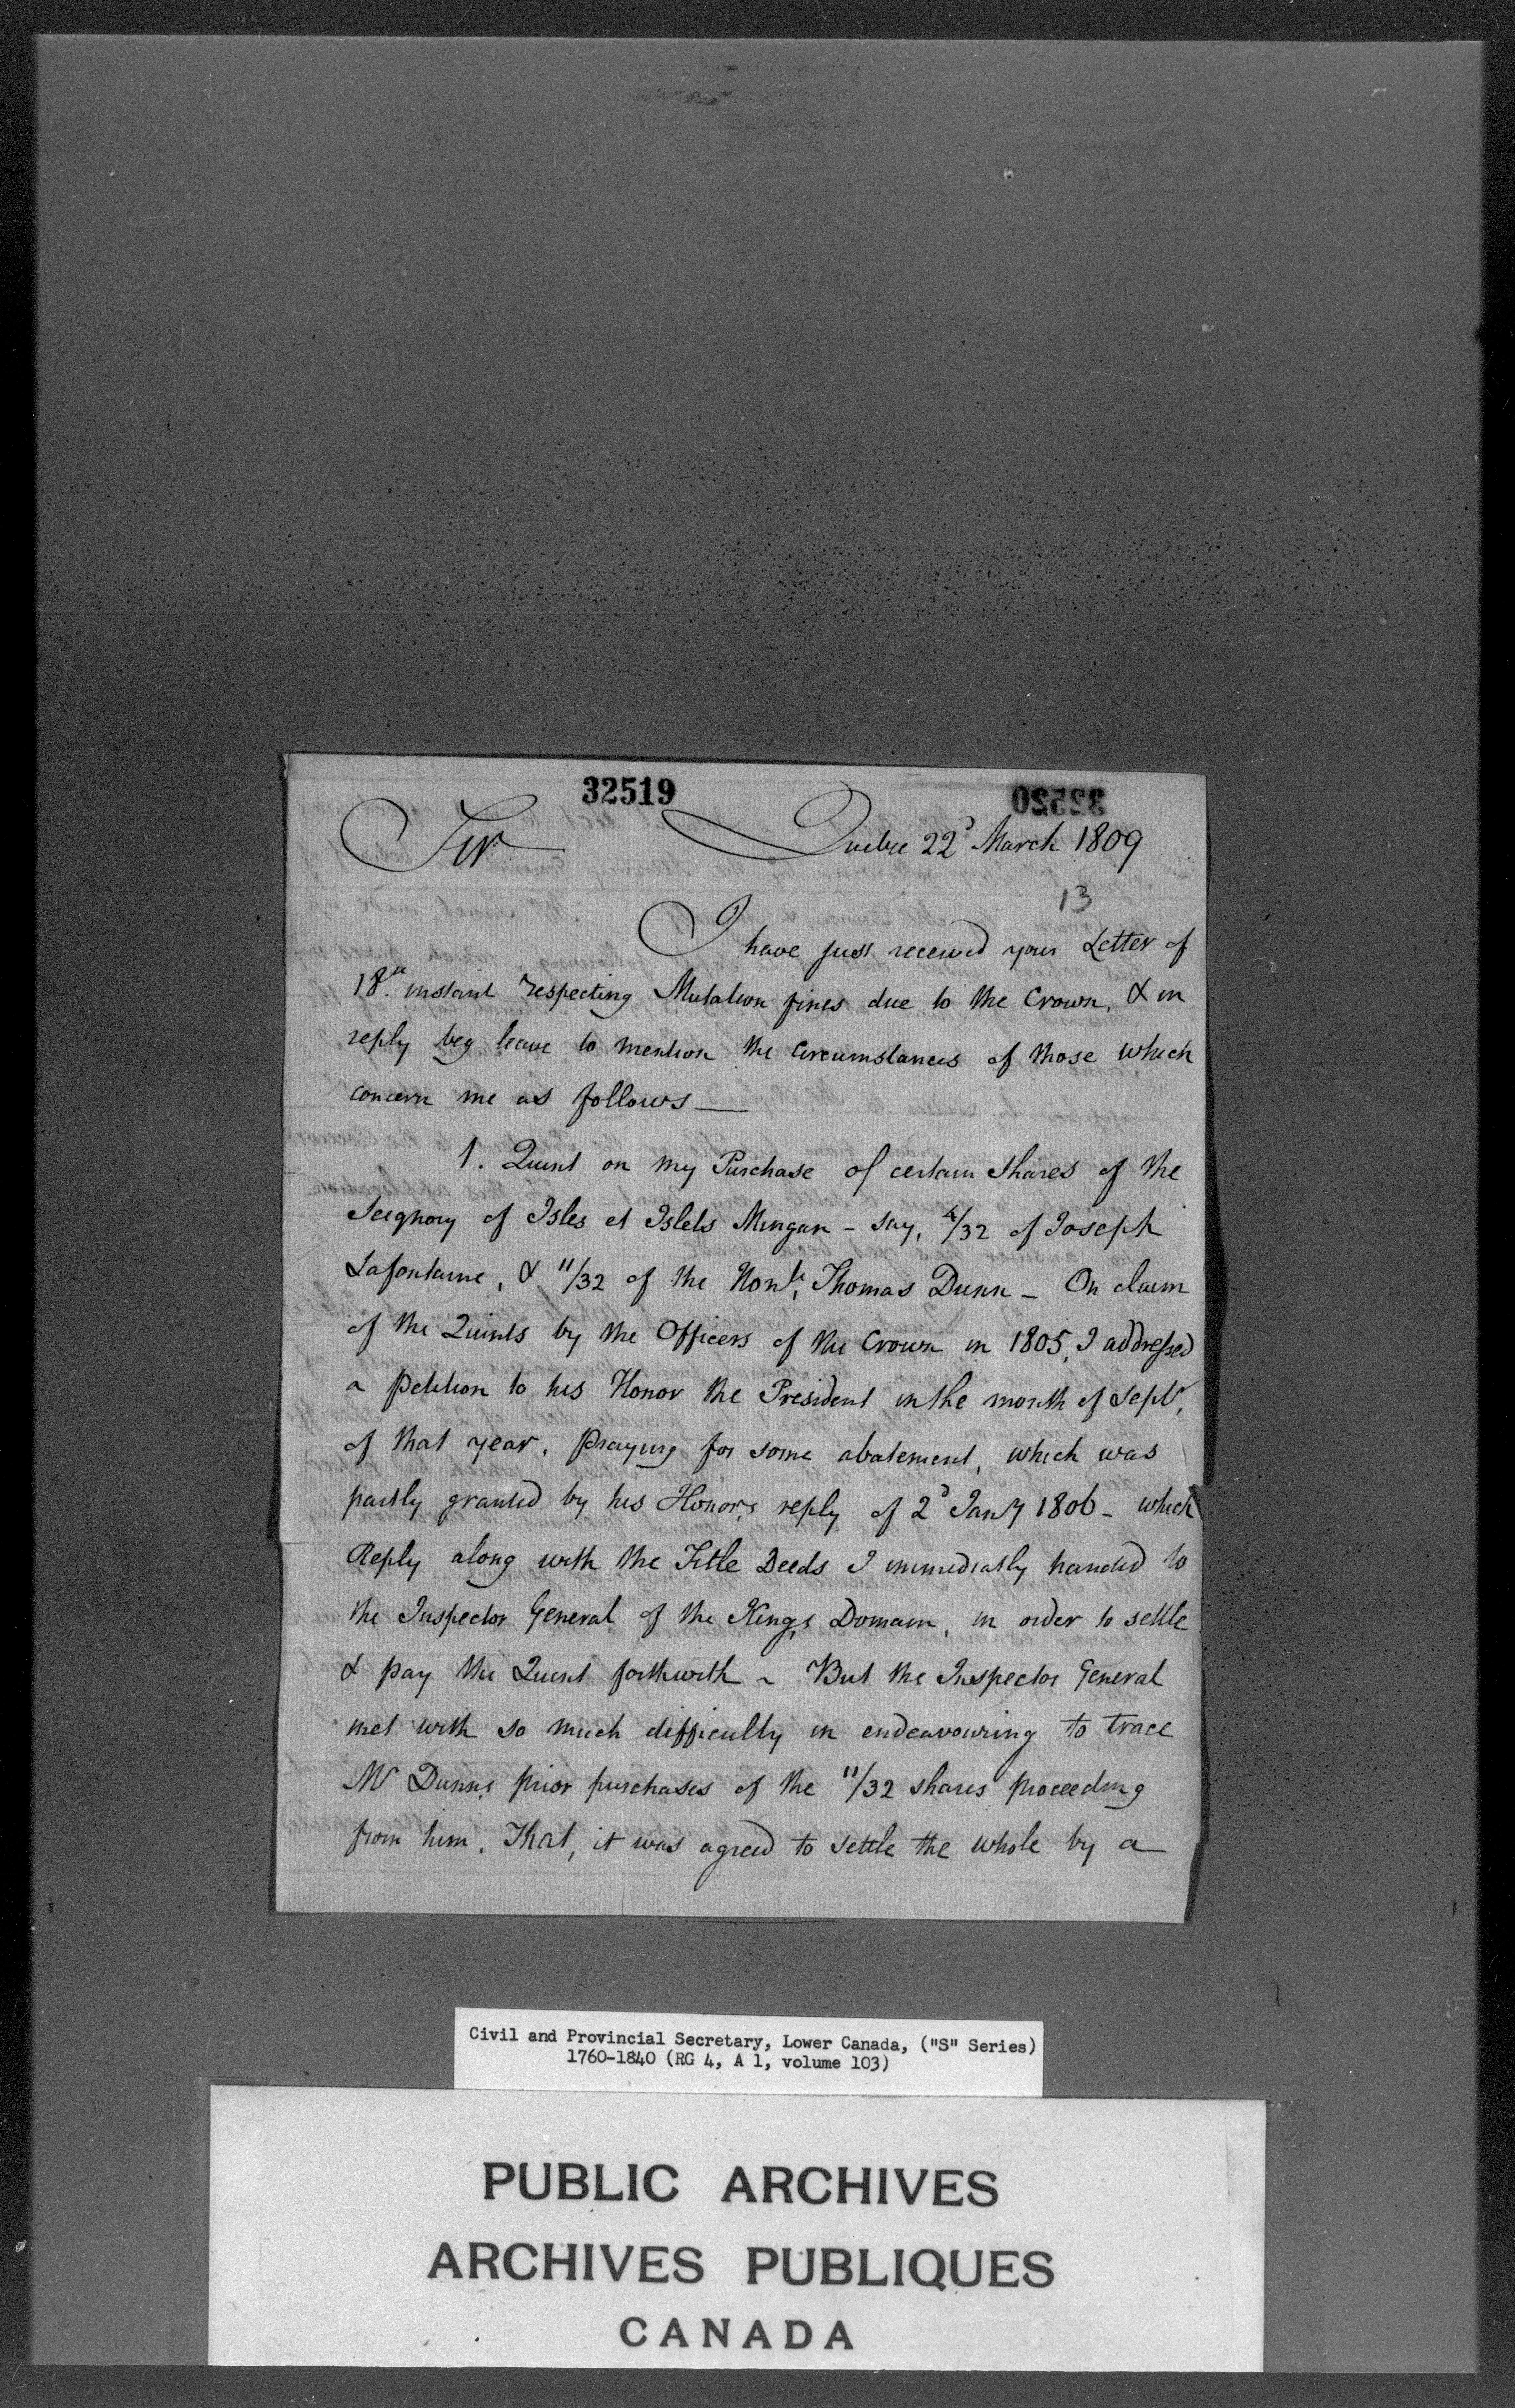 32519
32520
Sir Quebec 22d March 1809
13
I have just received your Letter of
18th instant respecting Mutation fines due to the Crown, & in
reply beg leave to mention the Circumstances of those which
concern me as follows —
1. Quint on my Purchase of certain Shares of the
Seignory of Isles et Islets Mingan - say, 4/32 of Joseph
Lafontaine, & 11/32 of the Honle, Thomas Dunn - On claim
of the Quints by the Officers of the Crown in 1805, I addressed
a Petition to his Honor the President in the month of Septr,
of that year, Praying for some abatement, which was
partly granted by his Honor's reply of 2d Jany 1806 - which
Reply along with the Title Deeds I immediatly handed to
the Inspector General of the King's Domain, in order to settle
& pay the Quint forthwith - But the Inspector General
met with so much difficulty in endeavouring to trace
Mr Dunn's prior purchases of the 11/32 shares proceeding
from him, That, it was agreed to settle the whole by a
Civil and Provincial Secretary, Lower Canada, ("S" Series)
1760-1840 (RG 4, A 1, volume 103)
PUBLIC ARCHIVES
ARCHIVES PUBLIQUES
CANADA